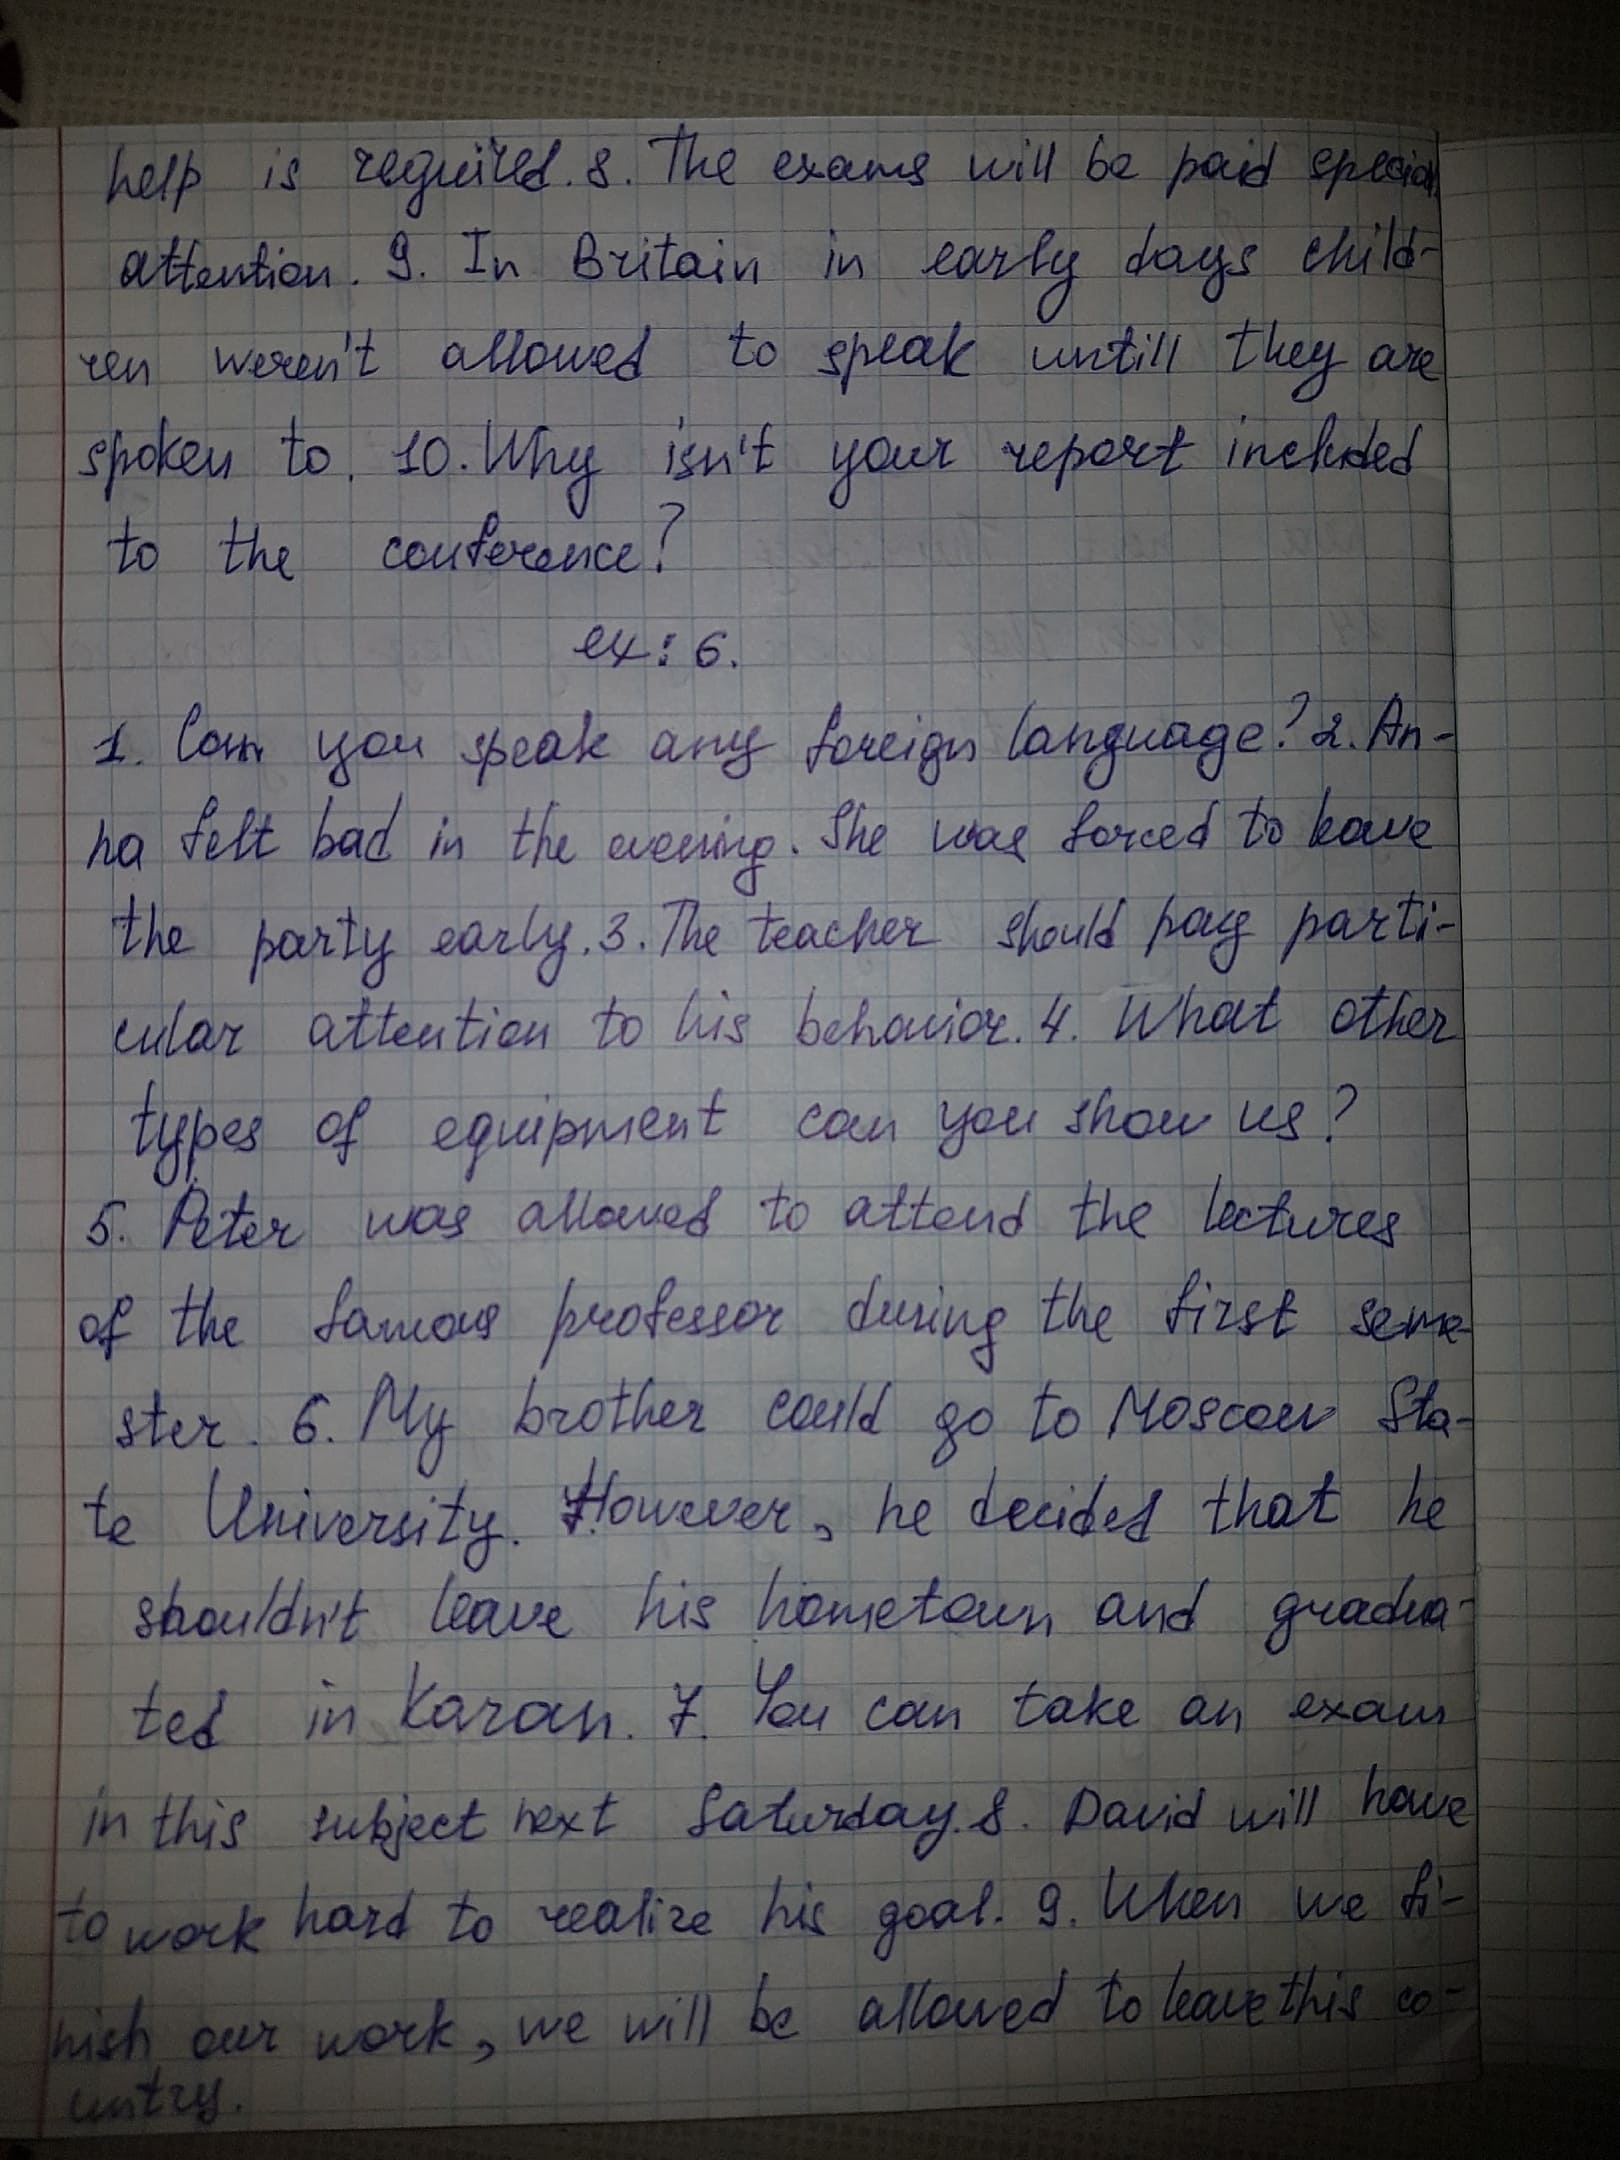 help is required. 8. The exams will be paid special
attention. 9. In Britain in early days child-
ren weren't allowed to speak untill they are
spoken to. 10. Why isn't your report included
to the conference?
ex: 6.
1. Can you speak any foreign language? 2. An-
na felt bad in the evening. She was forced to leave
the party early. 3. The teacher should pay parti-
cular attention to his behavior. 4. What other
types of equipment can you show us?
5. Peter was allowed to attend the lectures
of the famous professor during the first seme-
ster. 6. My brother could go to Moscow Sta-
te University. However, he decided that he
shouldn't leave his hometown and gradua-
ted in Kazan. 7. You can take an exam
in this subject next Saturday. 8. David will have
to work hard to realize his goal. 9. When we fi-
nish our work, we will be allowed to leave this co-
untry.